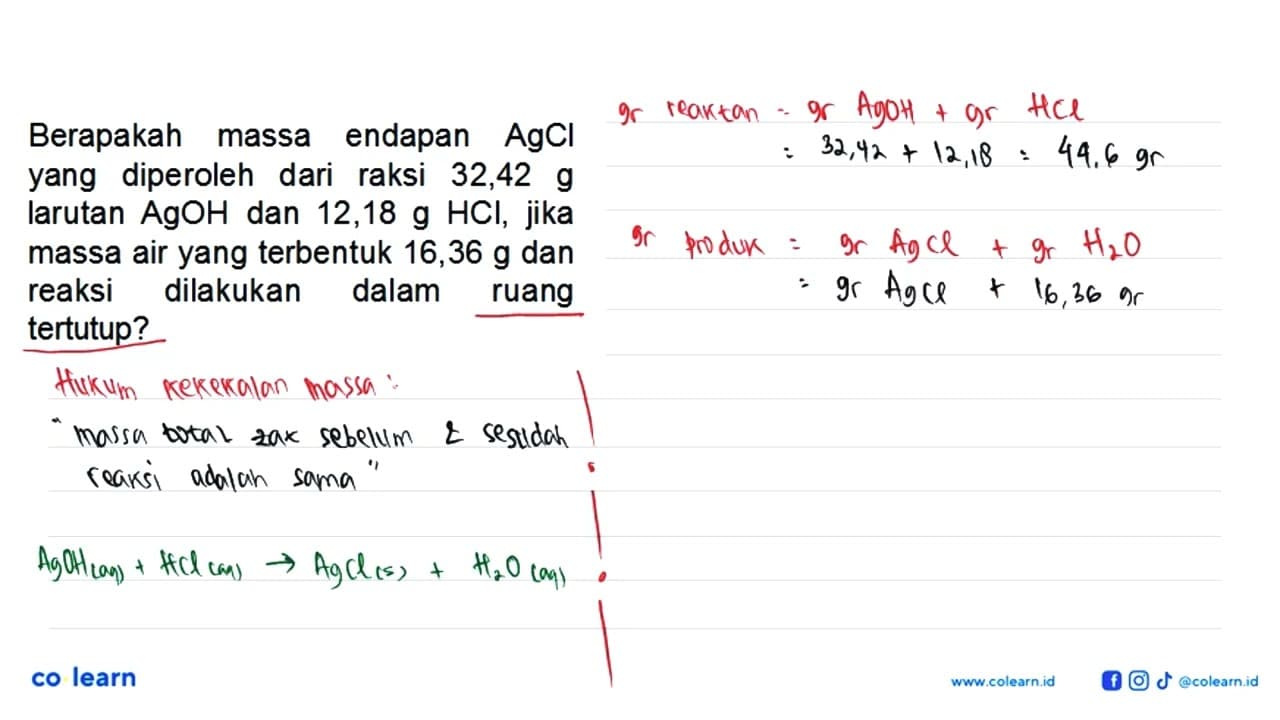 Berapakah massa endapan AgCl
yang diperoleh dari raksi 32,42 g
larutan AgOH dan 12,18 g HCl, jika
massa air yang terbentuk 16,36 g dan
reaksi dilakukan dalam ruang
tertutup?
Hukum kekekalan massa :
"massa total zak sebelum & sesudah
reaksi adalah sama"
AgOH(aq) + HCl(aq) → AgCl(s) + H₂O(aq)
gr reaktan = gr AgOH + gr HCl
= 32,42 + 12,18 = 44,6 gr
gr produk = gr AgCl + gr H₂O
= gr AgCl + 16,36 gr
co learn
www.colearn.id
@colearn.id